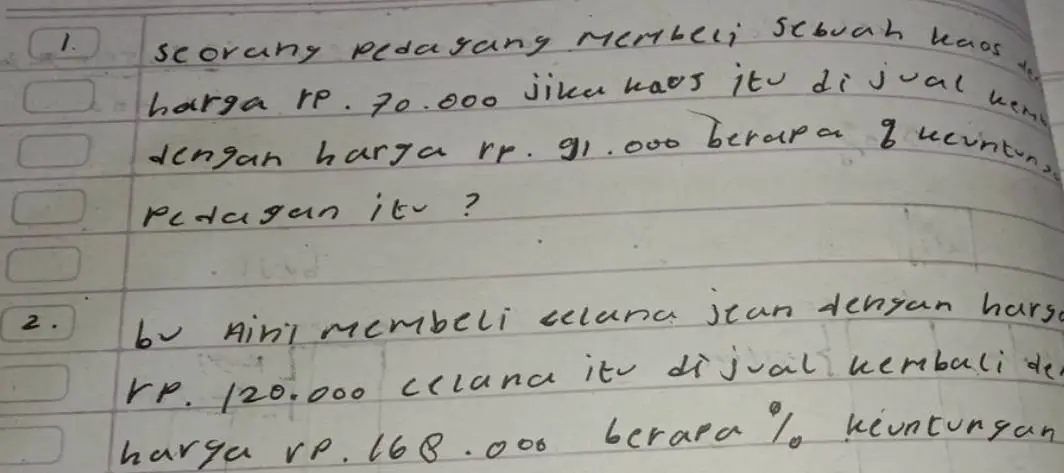 1. seorang pedagang membeli sebuah kaos
harga rp. 70.000 jika kaos itu di jual
dengan harga rp. 91.000 berapa %
pedagan itu ?
2. bu Aini membeli celana jean dengan
rp. 120.000 celana itu di jual kembali
harga rp. 168.000 berapa % keuntungan